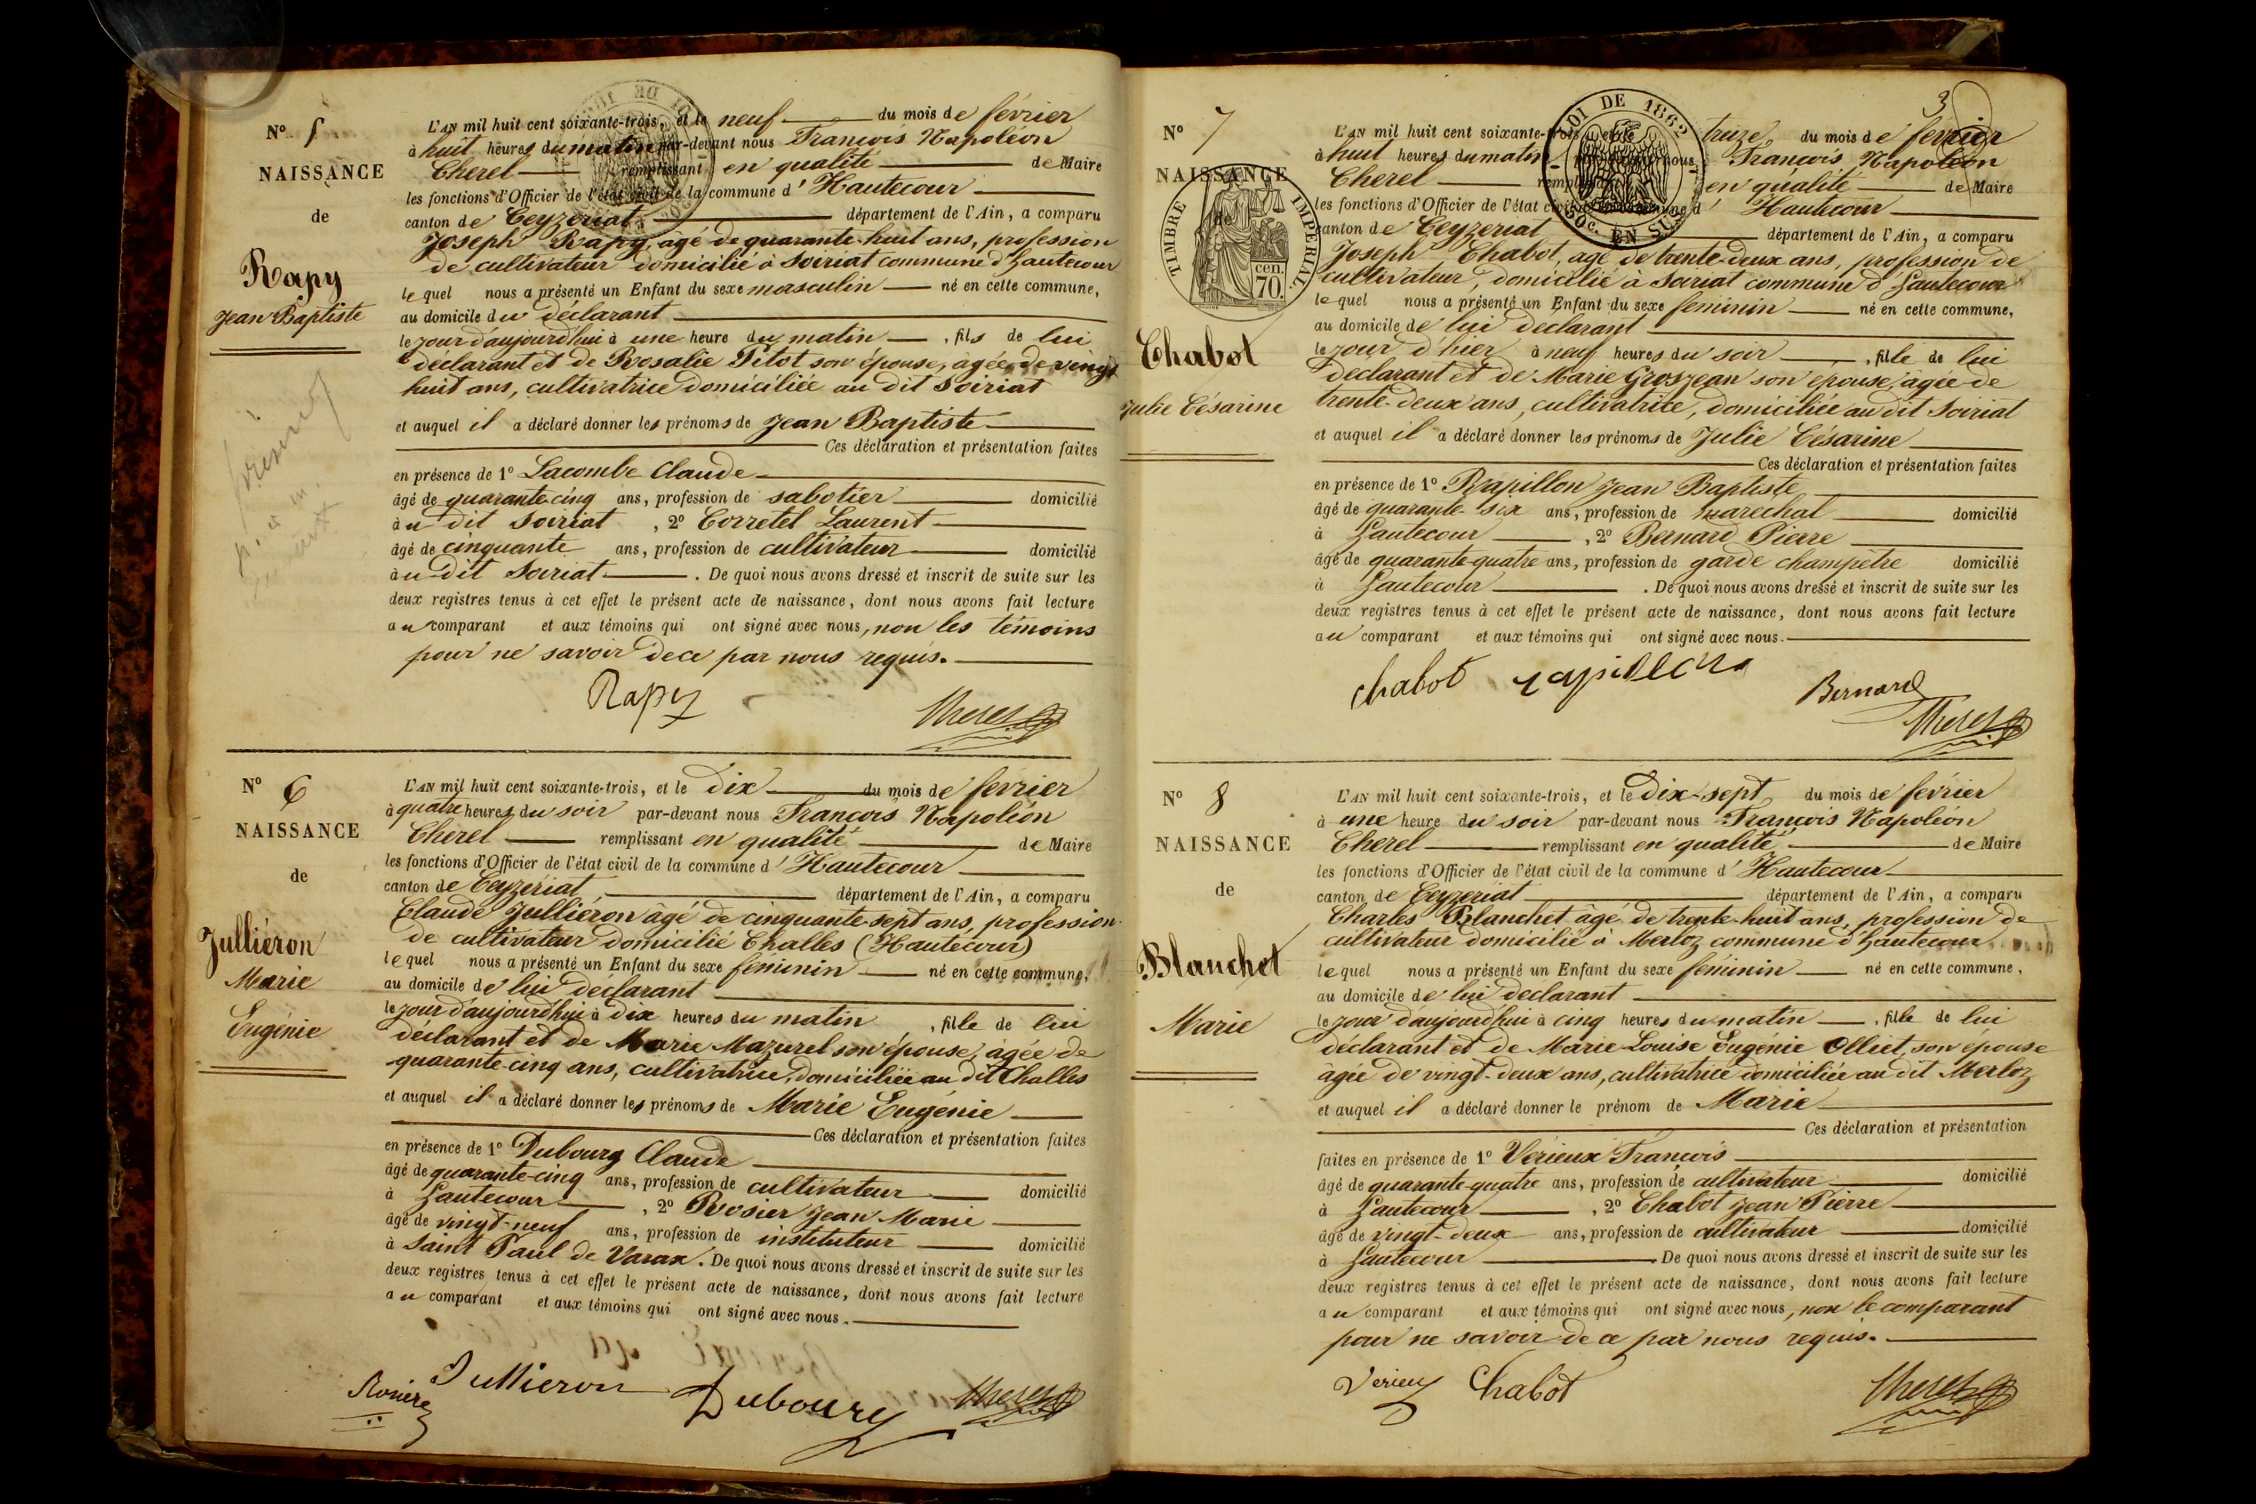 N° 5
NAISSANCE
de
Rapy
Jean Baptiste
L'AN mil huit cent soixante-trois, et le neuf du mois de février
à huit heures du matin par-devant nous François Napoléon
Cherel remplissant en qualité de Maire
les fonctions d'Officier de l'état civil de la commune d'Hautecour
canton de Ceyzeriat département de l'Ain, a comparu
Joseph Rapy, âgé de quarante-huit ans, profession
de cultivateur domicilié à Soiriat commune d'hautecour
lequel nous a présenté un Enfant du sexe masculin né en cette commune,
au domicile du déclarant
le jour d'aujourd'hui à une heure du matin, fils de lui
déclarant et de Rosalie Pitot son épouse, âgée de vingt
huit ans, cultivatrice domiciliée au dit Soiriat
et auquel il a déclaré donner les prénoms de Jean Baptiste
Ces déclaration et présentation faites
en présence de 1° Lacombe Claude
âgé de quarante-cinq ans, profession de sabotier domicilié
au dit Soiriat, 2° Corretel Laurent
âgé de cinquante ans, profession de cultivateur domicilié
au dit Soiriat. De quoi nous avons dressé et inscrit de suite sur les
deux registres tenus à cet effet le présent acte de naissance, dont nous avons fait lecture
au comparant et aux témoins qui ont signé avec nous, non les témoins
pour ne savoir de ce par nous requis.
Rapy Cherel
N° 6
NAISSANCE
de
Julliéron
Marie
Eugénie
L'AN mil huit cent soixante-trois, et le dix du mois de fevrier
à quatre heures du soir par-devant nous François Napoléon
Cherel remplissant en qualité de Maire
les fonctions d'Officier de l'état civil de la commune d'Hautecour
canton de Ceyzériat département de l'Ain, a comparu
Claude Julliéron âgé de cinquante-sept ans, profession
de cultivateur domicilié Challes (Hautecour)
lequel nous a présenté un Enfant du sexe féminin né en cette commune,
au domicile de lui déclarant
le jour d'aujourd'hui à dix heures du matin, fille de lui
déclarant et de Marie Mazurel son épouse, âgée de
quarante-cinq ans, cultivatrice, domiciliée au dit Challes
et auquel il a déclaré donner les prénoms de Marie Eugénie
Ces déclaration et présentation faites
en présence de 1° Dubourg Claude
âgé de quarante-cinq ans, profession de cultivateur domicilié
à hautecour, 2° Rosier Jean Marie
âgé de vingt-neuf ans, profession de instituteur domicilié
à Saint Paul de Varax. De quoi nous avons dressé et inscrit de suite sur les
deux registres tenus à cet effet le présent acte de naissance, dont nous avons fait lecture
au comparant et aux témoins qui ont signé avec nous.
Jullieron Dubourg Cherel
3
LOI DE 1862
50c. EN SUS
TIMBRE IMPERIAL
70 cen.
N° 7
NAISSANCE
de
Chabot
Julie Césarine
L'AN mil huit cent soixante-trois, et le treize, du mois de fevrier
à huit heures du matin par-devant nous François Napoléon
Cherel remplissant en qualité de Maire
les fonctions d'Officier de l'état civil de la commune d'Hautecour
canton de Ceyzeriat département de l'Ain, a comparu
Joseph Chabot, âgé de trente-deux ans, profession de
cultivateur, domicilié à Soiriat commune d'hautecour
lequel nous a présenté un Enfant du sexe feminin né en cette commune,
au domicile de lui déclarant
le jour d'hier à neuf heures du soir, fille de lui
déclarant et de Marie Grosjean son épouse, âgée de
trente-deux ans, cultivatrice, domiciliée au dit Soiriat
et auquel il a déclaré donner les prénoms de Julie Césarine
Ces déclaration et présentation faites
en présence de 1° Rapillon Jean Baptiste
âgé de quarante-six ans, profession de marechal domicilié
à hautecour, 2° Bernard Pierre
âgé de quarante-quatre ans, profession de garde champêtre domicilié
à hautecour. De quoi nous avons dressé et inscrit de suite sur les
deux registres tenus à cet effet le présent acte de naissance, dont nous avons fait lecture
au comparant et aux témoins qui ont signé avec nous.
Chabot rapillon Bernard
Cherel
N° 8
NAISSANCE
de
Blanchet
Marie
L'AN mil huit cent soixante-trois, et le dix-sept, du mois de février
à une heure du soir par-devant nous François Napoléon
Cherel remplissant en qualité de Maire
les fonctions d'Officier de l'état civil de la commune d'Hautecour
canton de Ceyzeriat département de l'Ain, a comparu
Charles Blanchet âgé de trente-huit ans, profession de
cultivateur domicilié à Merloz commune d'hautecour
lequel nous a présenté un Enfant du sexe féminin né en cette commune,
au domicile de lui declarant
le jour d'aujourd'hui à cinq heures du matin, fille de lui
déclarant et de Marie-Louise Eugénie Olliet, son épouse
agée de vingt-deux ans, cultivatrice domiciliée au dit Merloz
et auquel il a déclaré donner le prénom de Marie
Ces déclaration et présentation
faites en présence de 1° Verieux François
âgé de quarante-quatre ans, profession de cultivateur domicilié
à hautecour, 2° Chabot Jean Pierre
âgé de vingt-deux ans, profession de cultivateur domicilié
à hautecour. De quoi nous avons dressé et inscrit de suite sur les
deux registres tenus à cet effet le présent acte de naissance, dont nous avons fait lecture
au comparant et aux témoins qui ont signé avec nous, non le comparant
pour ne savoir de ce par nous requis.
Verieux Chabot Cherel